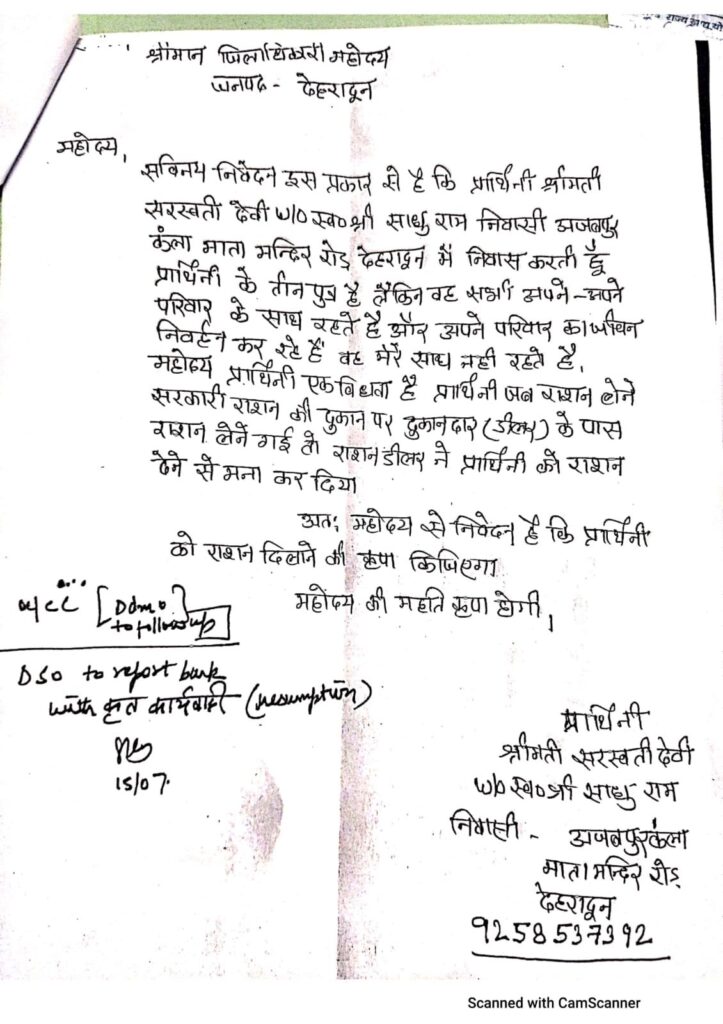 श्रीमान जिलाधिकारी महोदय
जनपद - देहरादून
महोदय,
सविनय निवेदन इस प्रकार से है कि प्रार्थिनी श्रीमती
सरस्वती देवी w/o स्व० श्री साधु राम निवासी अजबपुर
कंला माता मन्दिर रोड़ देहरादून मे निवास करती हूँ
प्रार्थिनी के तीन पुत्र है लेकिन वह सभी अपने-अपने
परिवार के साथ रहते है और अपने परिवार का जीवन
निर्वहन कर रहे हैं वह मेरे साथ नही रहते है,
महोदय प्रार्थिनी एक विधवा है प्रार्थिनी जब राशन लेने
सरकारी राशन की दुकान पर दुकानदार (डीलर) के पास
राशन लेने गई तो राशन डीलर ने प्रार्थिनी को राशन
देने से मना कर दिया
अतः महोदय से निवेदन है कि प्रार्थिनी
को राशन दिलाने की कृपा किजिएगा
महोदय की महति कृपा होगी,
[Ddmo
to followup]
DSO to report back
with कृत कार्यवाही (resumption)
15/07.
प्रार्थिनी
श्रीमती सरस्वती देवी
w/o स्व० श्री साधु राम
निवासी - अजबपुर कंला
माता मन्दिर रोड़
देहरादून
9258537392
Scanned with CamScanner